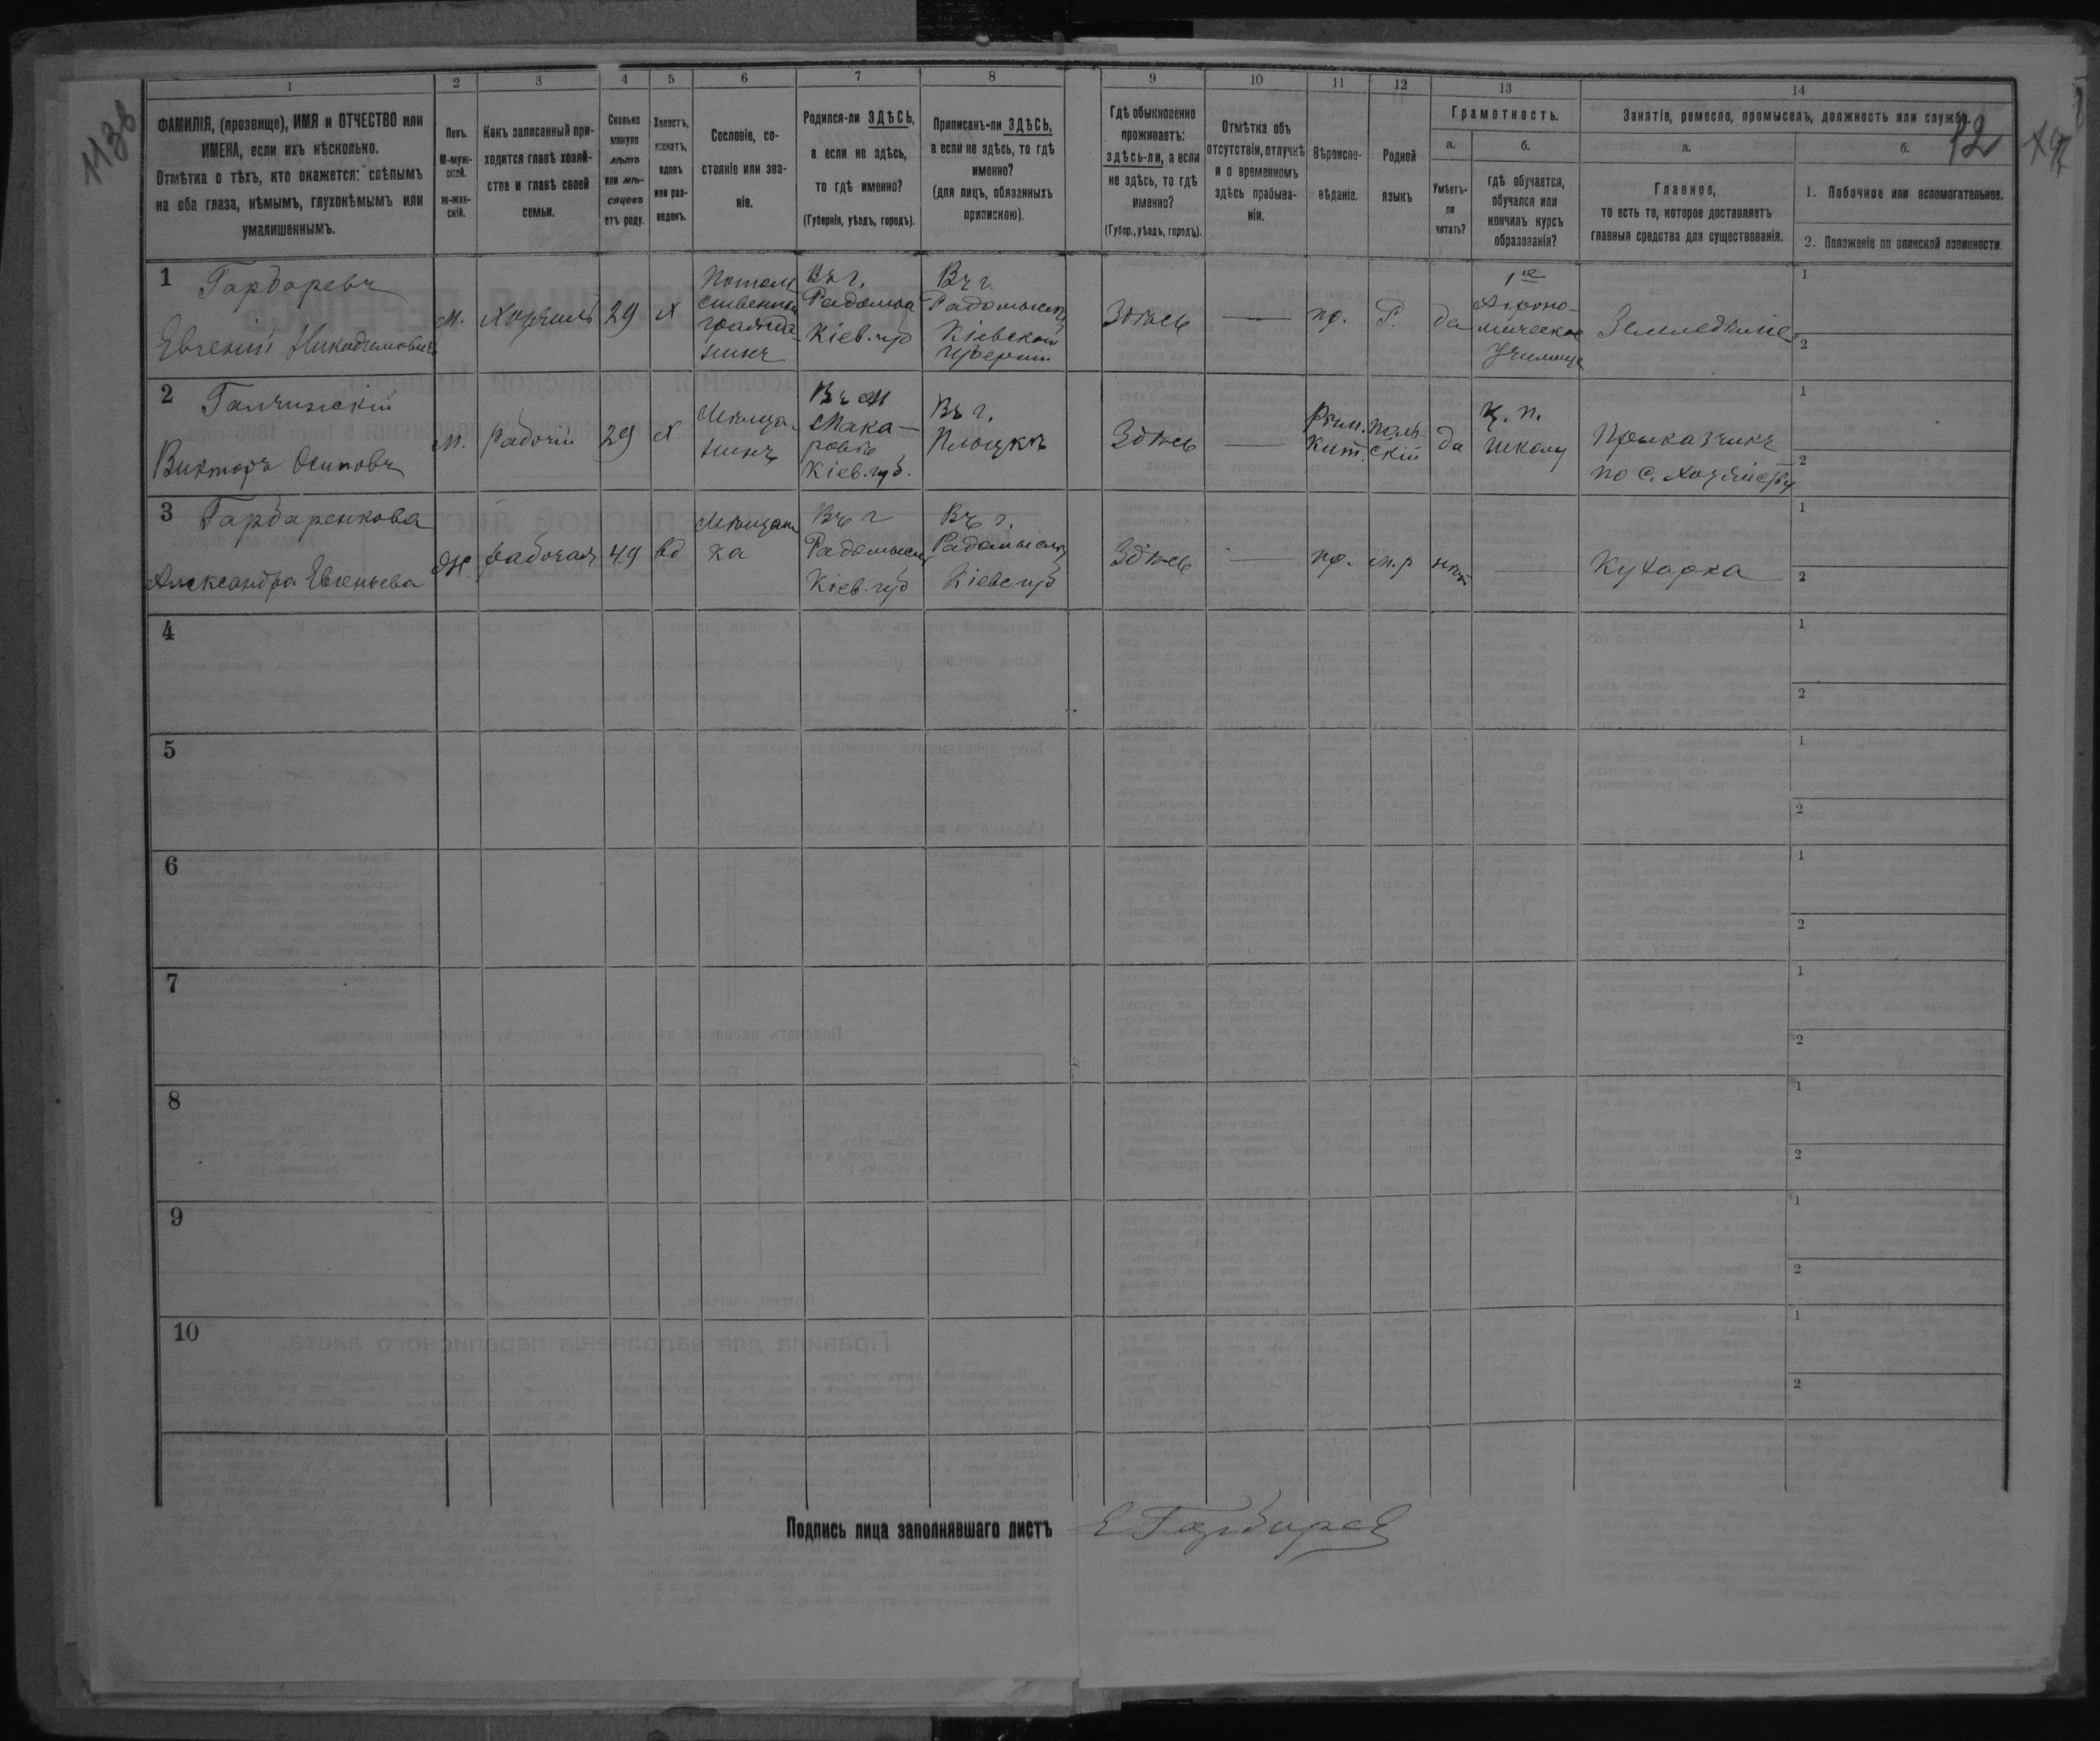 1138
12
1
2
3
4
5
6
7
8
9
10
11
12
13
14
ФАМИЛІЯ, (прозвище), ИМЯ и ОТЧЕСТВО или
ИМЕНА, если ихъ нѣсколько.
Отмѣтка о тѣхъ, кто окажется: слѣпымъ
на оба глаза, нѣмымъ, глухонѣмымъ или
умалишеннымъ.
Полъ.
М-муж-
ской.
ж-жен-
скій.
Какъ записанный при-
ходится главѣ хозяй-
ства и главѣ своей
семьи.
Сколько
минуло
лѣтъ
или мѣ-
сяцевъ
отъ роду.
Холостъ,
женатъ,
вдовъ
или раз-
веденъ.
Сословіе, со-
стояніе или зва-
ніе.
Родился-ли ЗДѢСЬ,
а если не здѣсь,
то гдѣ именно?
(Губернія, уѣздъ, городъ).
Приписанъ-ли ЗДѢСЬ,
а если не здѣсь, то гдѣ
именно?
(для лицъ, обязанныхъ
припискою).
Гдѣ обыкновенно
проживаетъ:
здѣсь-ли, а если
не здѣсь, то гдѣ
именно?
(Губер., уѣздъ, городъ).
Отмѣтка объ
отсутствіи, отлучкѣ
и о временномъ
здѣсь пребыва-
ніи.
Вѣроиспо-
вѣданіе.
Родной
языкъ
Грамотность.
а.
Умѣетъ-
ли
читать?
б.
гдѣ обучается,
обучался или
кончилъ курсъ
образованія?
Занятіе, ремесло, промыселъ, должность или служба.
а.
Главное,
то есть то, которое доставляетъ
главныя средства для существованія.
б.
1. Побочное или вспомогательное.
2. Положеніе по воинской повинности.
1
Гарбаревъ
Евгеній Никодимовичъ
м.
Хозяинъ
29
х
Потом
ственный
гражда
нинъ
Въ г.
Радомысл
Кіев. губ
Въ г.
Радомысл
Кіевской
губерніи
Здѣсь
—
пр.
Р.
да
Агроно-
мическое
Училище
Земледѣліе
1
2
2
Галчинскій
Викторъ Осиповъ
м.
Рабочій
29
х
Мѣща-
нинъ
Въ м
Мака-
ровѣ
Кіев. губ.
Въ г.
Плоцкъ
Здѣсь
—
Рим.
Кат.
поль
скій
да
ц. п.
школу
Приказчикъ
по с. хозяйству
1
2
3
Гарбаренкова
Александра Евгеньева
Ж
рабочая
49
вд
Мѣщан
ка
Въ г
Радомысл
Кіев. губ
Въ г.
Радомысл
Кіевс. губ
Здѣсь
—
пр.
м.р
нѣт
—
Кухарка
1
2
4
1
2
5
1
2
6
1
2
7
1
2
8
1
2
9
1
2
10
1
2
Подпись лица заполнявшаго листъ
Е Гарбарев